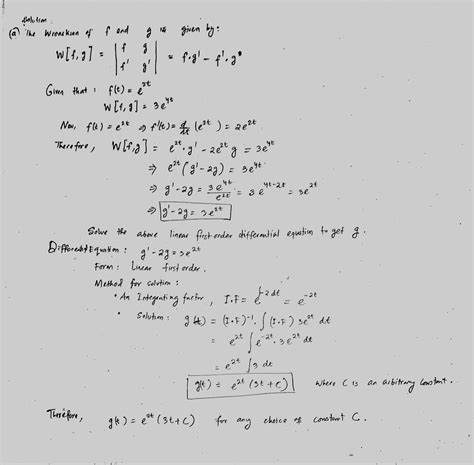 Solution:
(a) The Wronskian of f and g is given by:
W[f,g] = | f g | = f·g' - f'·g
| f' g' |
Given that: f(t) = e^{2t}
W[f,g] = 3e^{4t}
Now, f(t) = e^{2t} ⇒ f'(t) = d/dt (e^{2t}) = 2e^{2t}
Therefore, W[f,g] = e^{2t}·g' - 2e^{2t} g = 3e^{4t}
⇒ e^{2t} (g' - 2g) = 3e^{4t}
⇒ g' - 2g = 3e^{4t}/e^{2t} = 3e^{4t-2t} = 3e^{2t}
⇒ g' - 2g = 3e^{2t}
Solve the above linear first-order differential equation to get g.
Different Equation: g' - 2g = 3e^{2t}
Form: Linear first order.
Method for solution:
• An Integrating factor, I.F = e^{∫-2 dt} = e^{-2t}
• Solution: g(t) = (I.F)^{-1} · ∫ (I.F) 3e^{2t} dt
= e^{2t} ∫ e^{-2t} · 3e^{2t} dt
= e^{2t} ∫ 3 dt
g(t) = e^{2t} (3t + C) where C is an arbitrary constant.
Therefore, g(t) = e^{2t} (3t + C) for any choice of constant C.